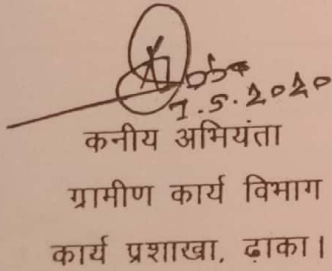 7.5.2020
कनीय अभियंता
ग्रामीण कार्य विभाग
कार्य प्रशाखा, ढ़ाका।